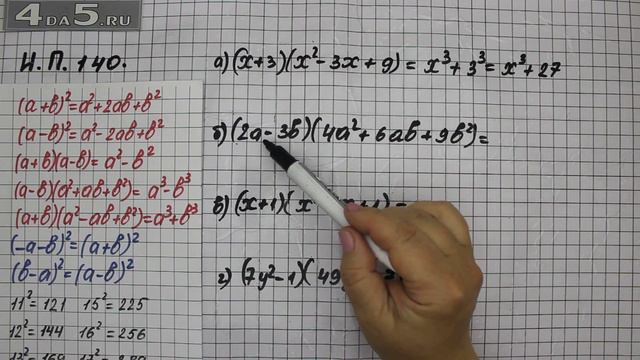 4DA5.RU
Н.П. 140.
(a+b)²=a²+2ab+b²
(a-b)²=a²-2ab+b²
(a+b)(a-b)=a²-b²
(a-b)(a²+ab+b²)=a³-b³
(a+b)(a²-ab+b²)=a³+b³
(-a-b)²=(a+b)²
(b-a)²=(a-b)²
11²=121 15²=225
12²=144 16²=256
а) (x+3)(x²-3x+9)=x³+3³=x³+27
б) (2a-3b)(4a²+6ab+9b²)=
в) (x+1)(x
г) (7y²-1)(49